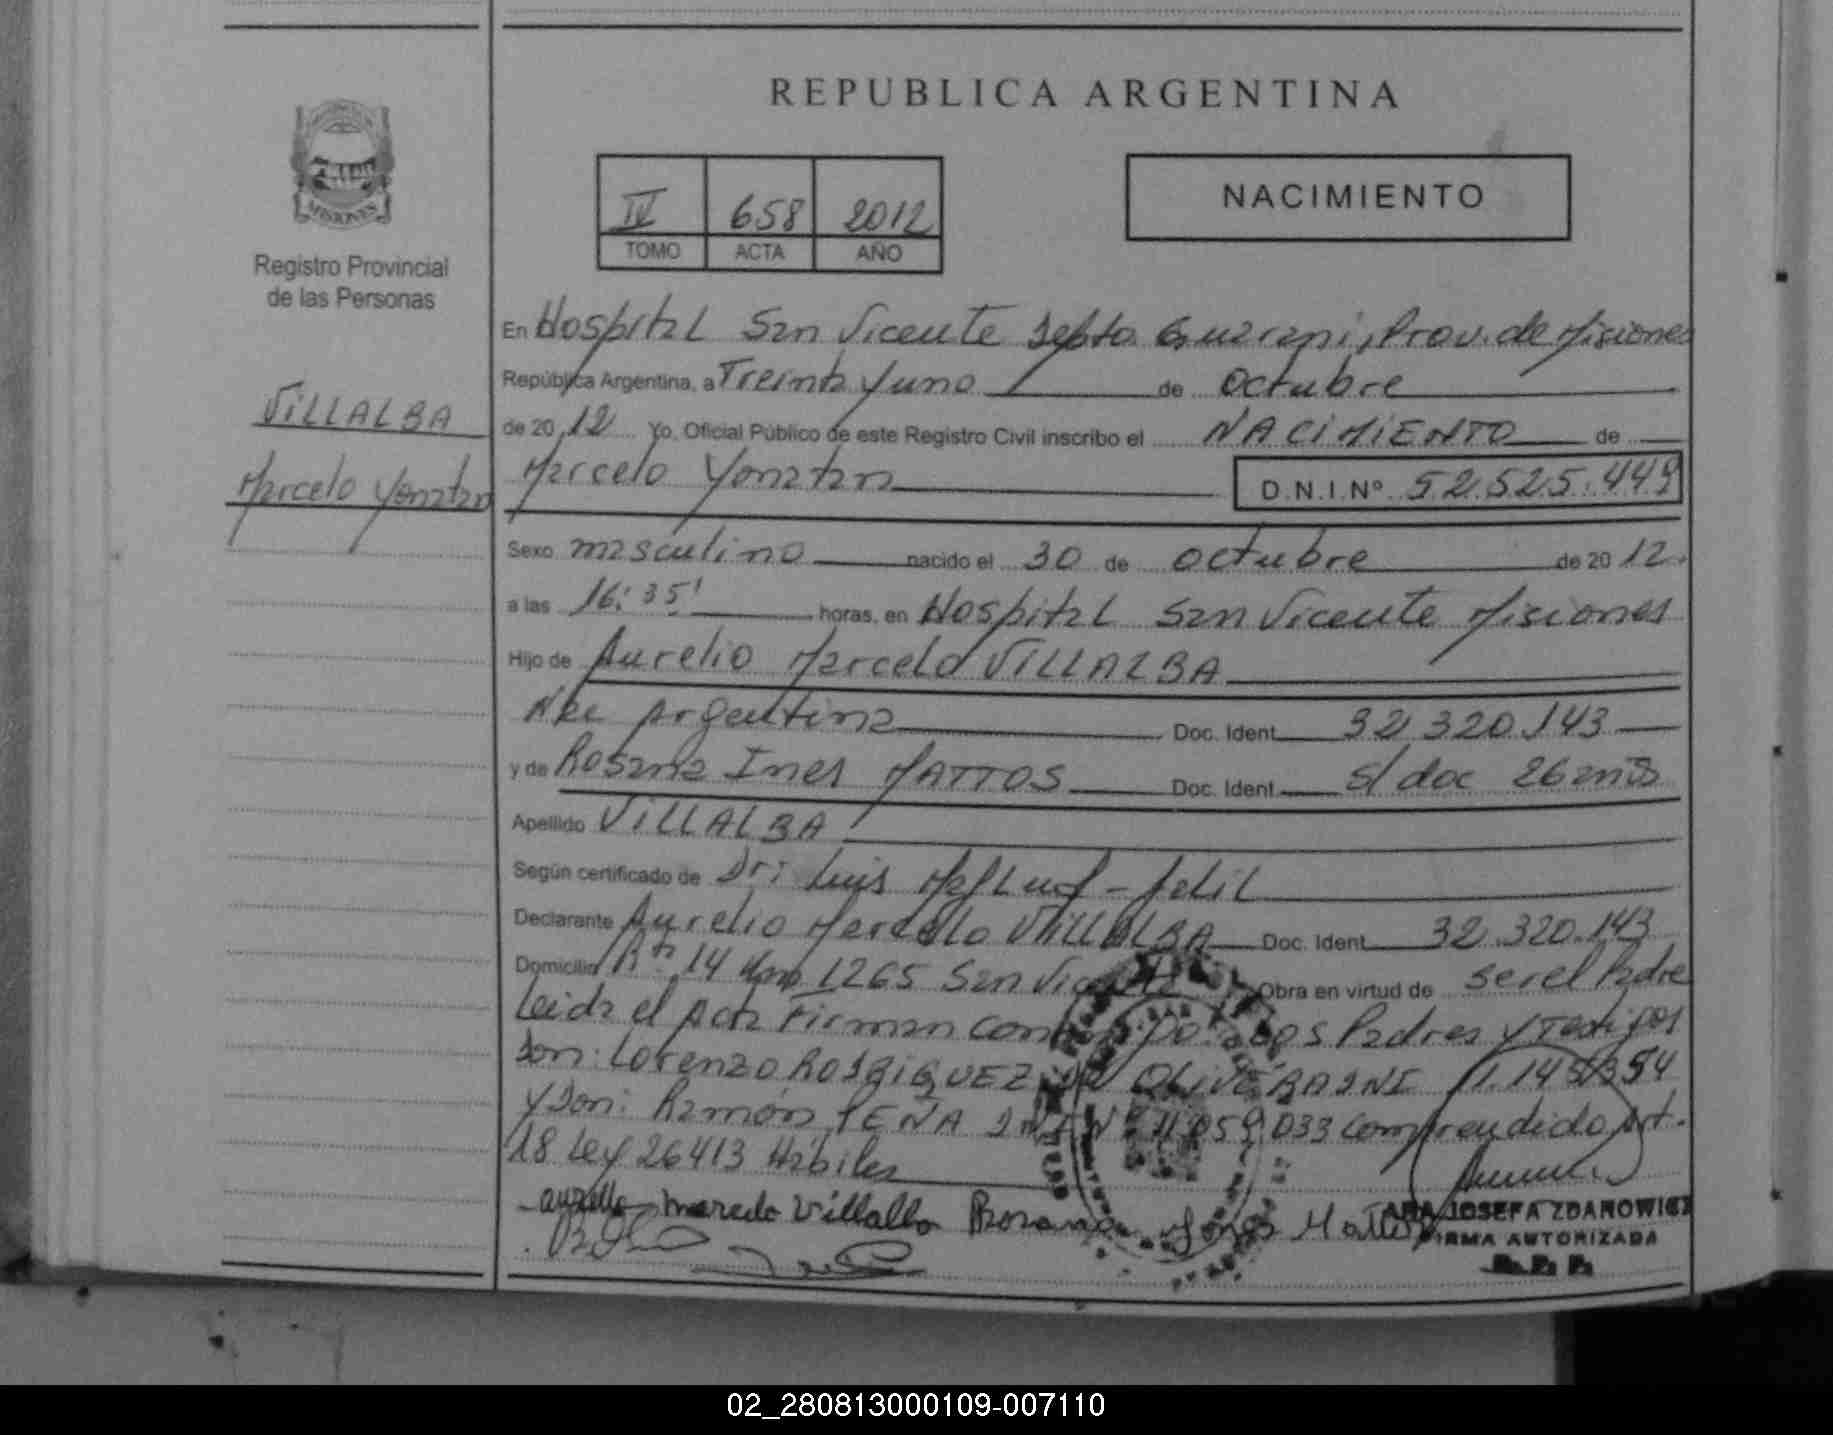 REPUBLICA ARGENTINA
MISIONES
Registro Provincial
de las Personas
IV 658 2012
TOMO ACTA AÑO
NACIMIENTO
VILLALBA
Marcelo Yonatan
En Hospital San Vicente Depto. Guarani, Prov. de Misiones
República Argentina, a Treinta y uno de octubre
de 20 12 Yo, Oficial Público de este Registro Civil inscribo el NACIMIENTO de
Marcelo Yonatan D.N.I.Nº 52.525.449
Sexo masculino nacido el 30 de octubre de 20 12.
a las 16:35' horas, en Hospital San Vicente Misiones
Hijo de Aurelio Marcelo VILLALBA
Nac Argentina Doc. Ident. 32.320.143
y de Rosana Ines MATTOS Doc. Ident. s/doc 26 años
Apellido VILLALBA
Según certificado de Dr: Luis
Declarante Aurelio Marcelo VILLALBA Doc. Ident. 32.320.143
Domicilio Rta 14 Km 1265 San Vicente Obra en virtud de ser el Padre
Leida el Acta Firman conmigo los Padres y Testigos
Don: Lorenzo RODRIGUEZ DE OLIVERA DNI 11.145.354
y Don: Ramón PEÑA DNI Nº 11.059.033 comprendido Art.
18 Ley 26413 Habiles
Marcelo Villalba Rosana Ines Mattos
ANA JOSEFA ZDANOWICZ
FIRMA AUTORIZADA
R. P. P.
02_280813000109-007110